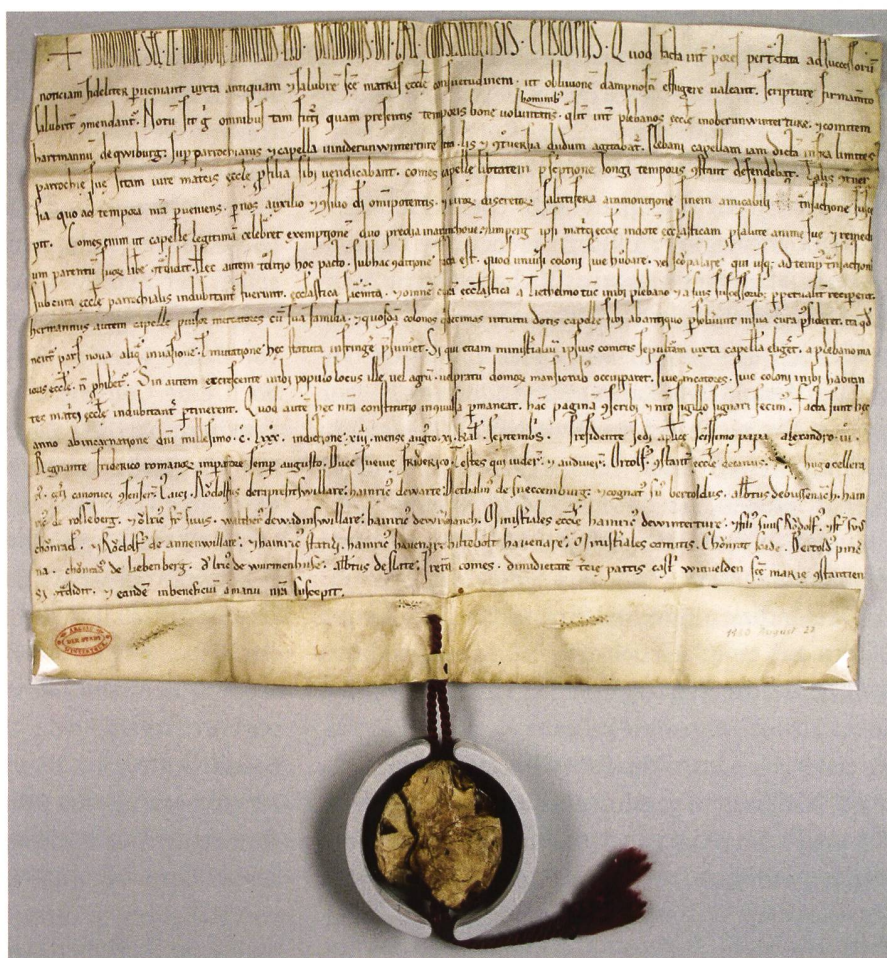 IN NOMINE SCE ET INDIVIDUE TRINITATIS EGO BERTOLDUS DEI GRA CONSTANTIENSIS EPISCOPUS. Quod facta int ad successorū
noticiam fideliter ꝑueniant iuxta antiquam ⁊ salubrē scē matris eccłe consuetudinem. ut oblivionē dampnosā effugere valeant. scripture firmamto
salubrit ꝯmendant. Notū sit g omnibus tam futuris quam presentis temporis bone voluntatis hominib; qlit int plebanos eccłe inoberunwinterture. ⁊ comitem
hartmannū de qwiburg. suꝑ parrochianis ⁊ capella inniderunwinterture sita. lis ⁊ ꝯtrversia diudum agitabat. Plebani capellam iam dictā infra limites
parrochie sue sitam iure matris eccłe ꝓ filia sibi vendicabant. comes capelle libtatem ꝓscriptione longi temporis ꝯstant defendebat. Talis ꝯtrver
sia quo ad tempora nrā ꝑueniens. ꝑ nos auxilio ⁊ ꝯsilio dī omnipotentis. ⁊ viroꝝ discretoꝝ salutifera ammonitione finem amicabili transactione susce
pit. Comes enim ut capelle legitimā celebret exemptionē duo predia ⁊ limperg ipsi matri eccłe in dotē eccłasticam ꝓ salute anime sue ⁊ remedi
um parentū suoꝝ libe tradidit. Hec autem tditio hoc pacto. sub hac ꝯditione facta est. quod universi coloni sive hubarie. vel scopalarie qui usq; ad temp transactionis
sub cura eccłe parrochialis indubitant fuerunt. eccłastica sacramta. ⁊ omnē curā eccłasticā a Diethelmo tūc inibi plebano ⁊ a suis successorib; ꝑpetualit reciperent.
hermannus autem capelle mercatores cū sua familia. ⁊ quosdā colonos decimas intuitu dotis capelle sibi ab antiquo ꝑsolventes in sua cura possideret. ita qd
neutra pars nova aliq invasione. ł mutatione hec statuta infringere ꝓsumeret. Si qui etiam ministialiū ipsius comitis sepulturam iuxta capellā eligeret. a plebano ma
ioris eccłe. n ꝓhibetur. Sin autem excrescente inibi populo locus ille vel agrū. vł pratū domoꝝ mansionib; occuparet. sive mcatores. sive coloni inibi habitan
tes matri eccłe indubitant ꝑtinerent. Quod aute hec nrā constitutio inconvulsa ꝑmaneat. hāc paginā ꝯscribi ⁊ nrō sigillo signari fecim. Facta sunt hec
anno ab incarnatione dni millesimo. c. lxxx. indictione. xiii. mense augto. xi. kal. septembs. Presidente sedi aplice scissimo papa alexandro. iii.
Regnante friderico romanoꝝ imꝑatore semꝑ augusto. Duce suevie friderico. Testes qui viderut ⁊ audiverut. Ortolf. ꝯstant eccłe decanus. hugo cellera
rī. ceteri canonici ꝯsenserut. Laici. Rodolfus de raprechtswillare. hainricus de warte. Berhtolfus de sneccemburg. ⁊ cognat sus bertoldus. albtus de bussenach. hain
ricus de rosseberg. ⁊ olricus fr suus. waltherus de wadinswillare. hainricus de Ministiales eccłe hainricus de winterture. ⁊ filii sui Rodolf. ⁊ fr suus
chonrad. ⁊ Rodolf de annenwillare. ⁊ hainricus hainricus havenare. hiltebolt havenare. Ministiales comitis. Chonrat Bertolf
na. chonrad de liebenberg. olricus de wurmenhuse. albtus de slatte. Preta comes. dimidietate tcie partis castri winvelden scē marie ꝯstantien
si tradidit. ⁊ eandē in beneficiū a manu nrā suscepit.
ARCHIV
DER STADT
WINTERTHUR
1180 August 22